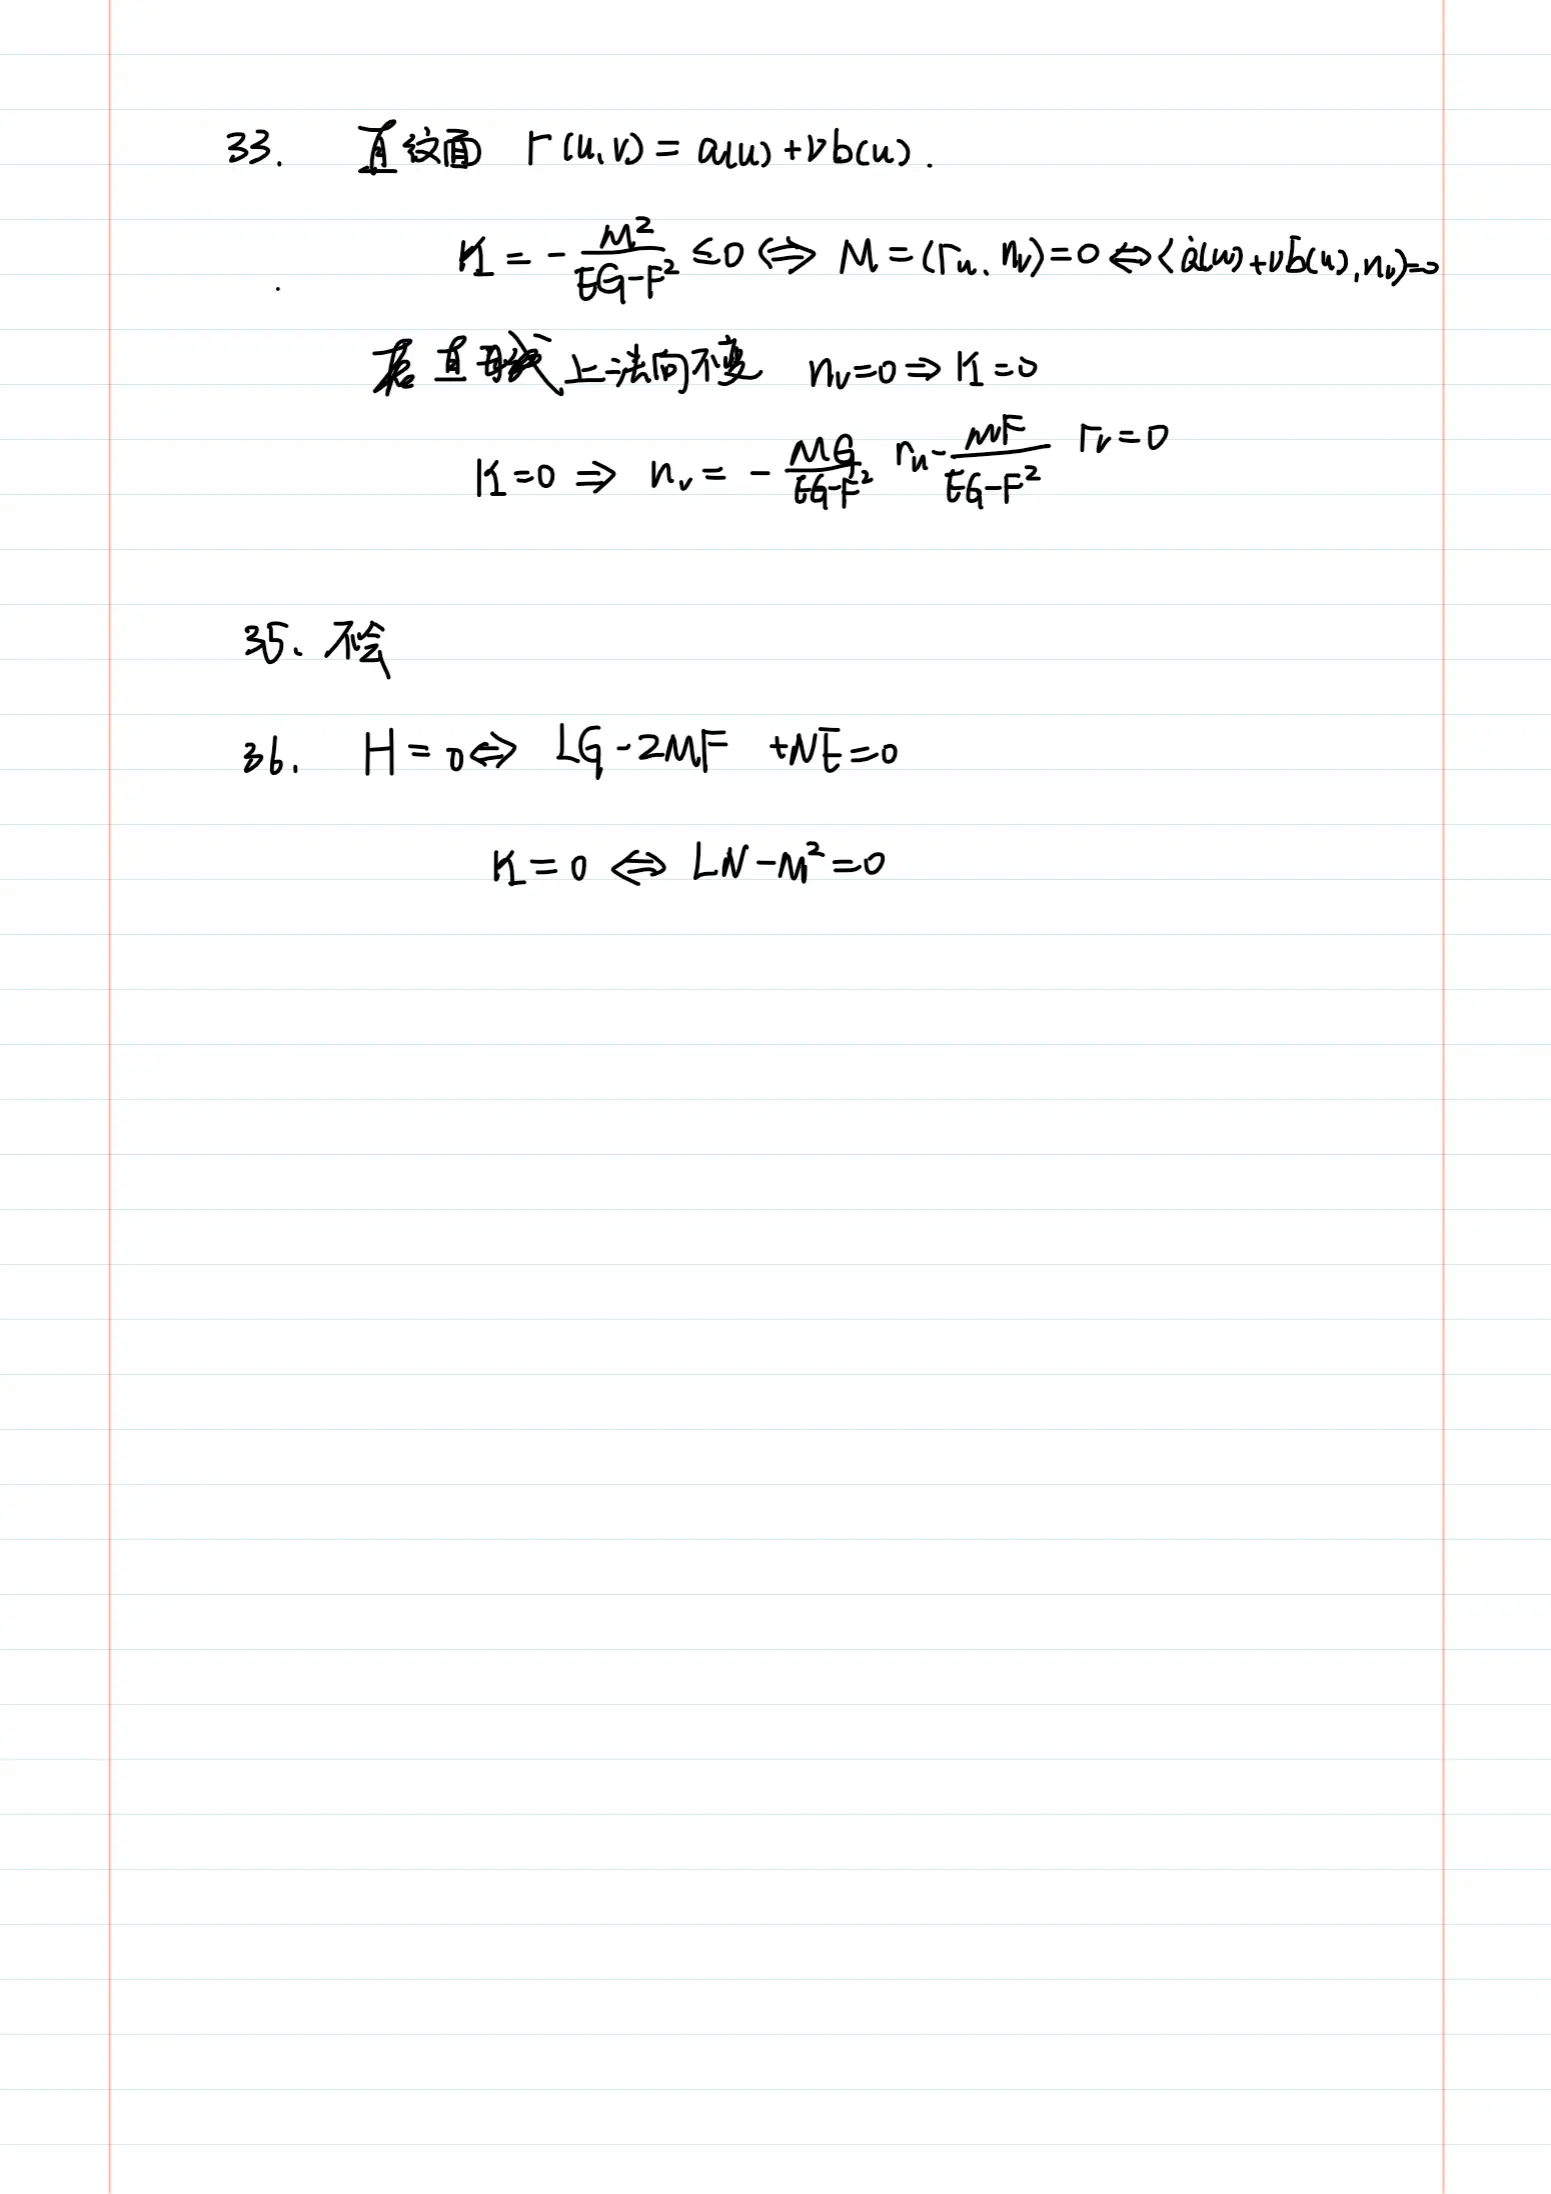 33. 直纹面 r(u,v) = a(u) + v b(u).
K = - \frac{M^2}{EG-F^2} ≤ 0 ⇔ M = (r_u, n_v) = 0 ⇔ ⟨ȧ(u) + v ḃ(u), n_v⟩ = 0
若直母线上法向不变 n_v = 0 ⇒ K = 0
K = 0 ⇒ n_v = - \frac{MG}{EG-F^2} r_u - \frac{MF}{EG-F^2} r_v = 0
35、不会
36. H = 0 ⇔ LG - 2MF + NE = 0
K = 0 ⇔ LN - M^2 = 0